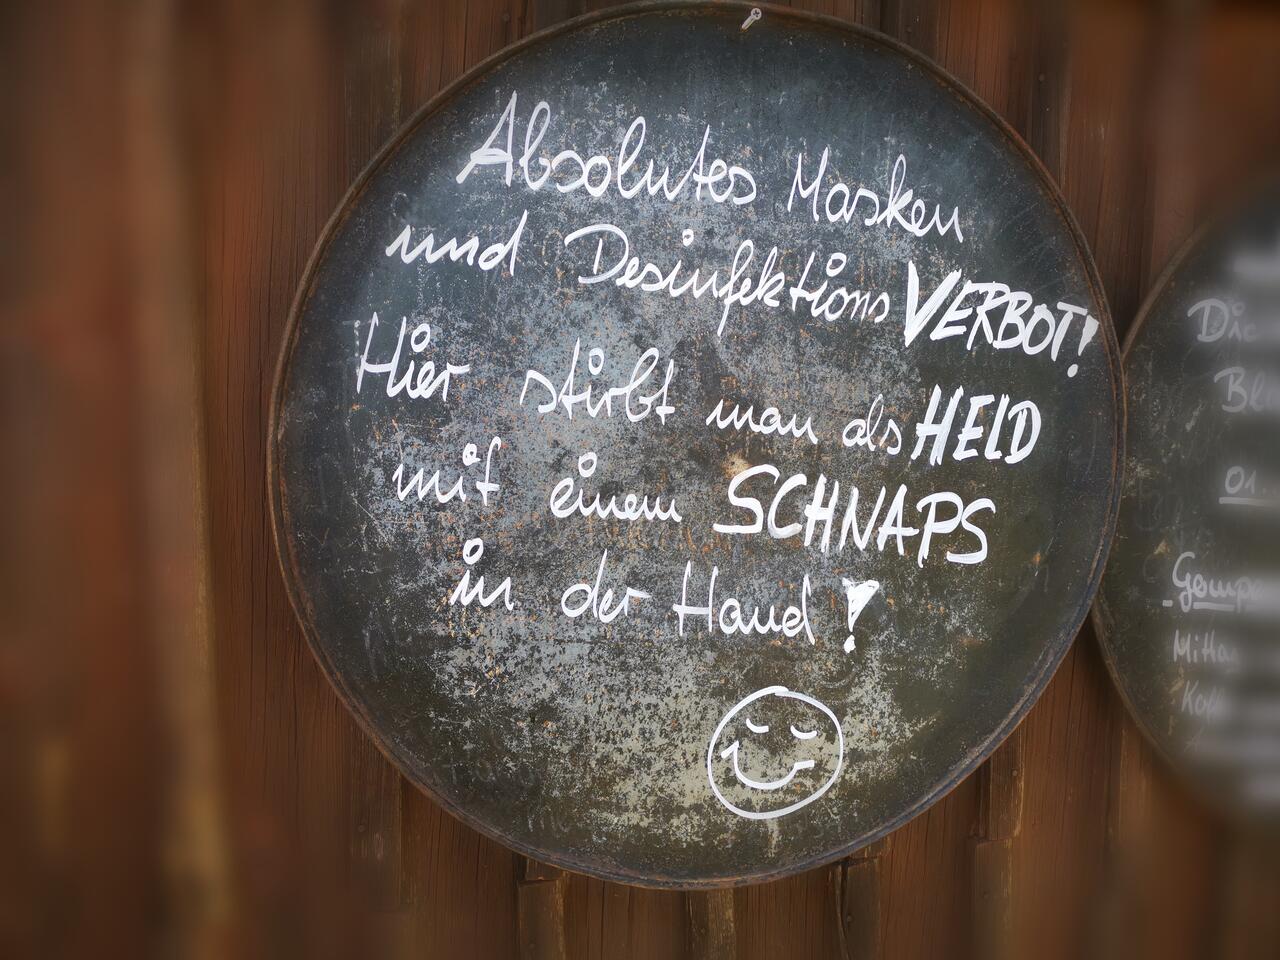 Absolutes Masken
und Desinfektions VERBOT!
Hier stirbt man als HELD
mit einem SCHNAPS
in der Hand!
01.